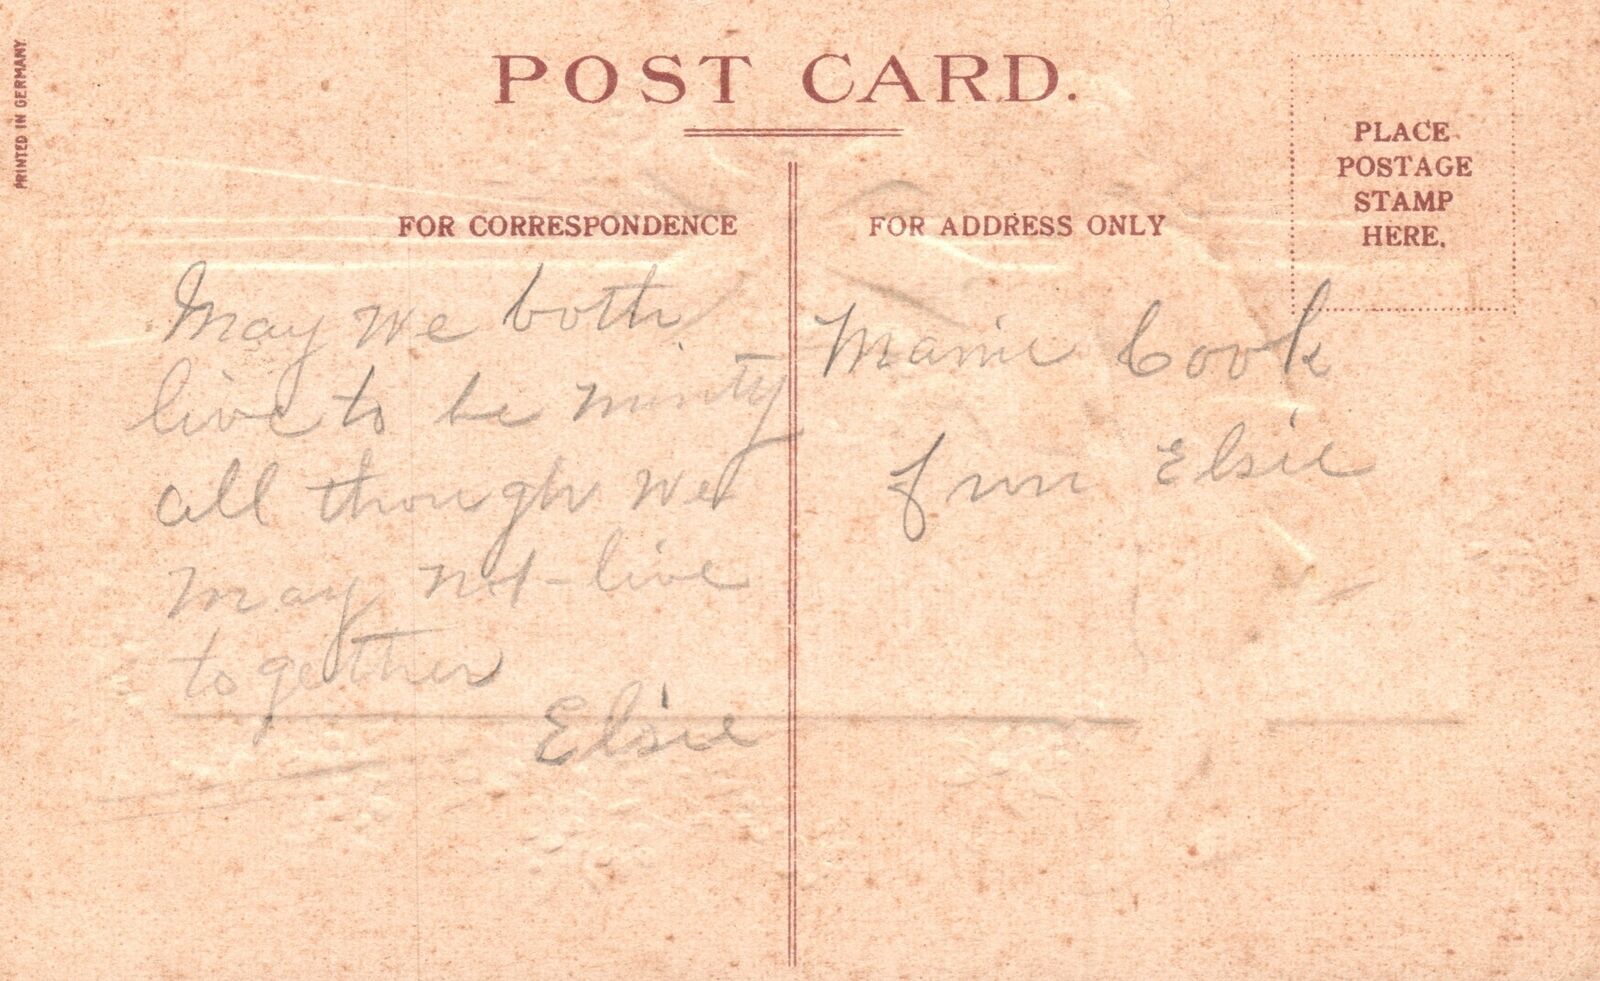 PRINTED IN GERMANY
POST CARD.
FOR CORRESPONDENCE
May we both
live to be ninty
all though we
may not - live
together
Elsie
FOR ADDRESS ONLY
PLACE
POSTAGE
STAMP
HERE.
Mamie Cook
from Elsie